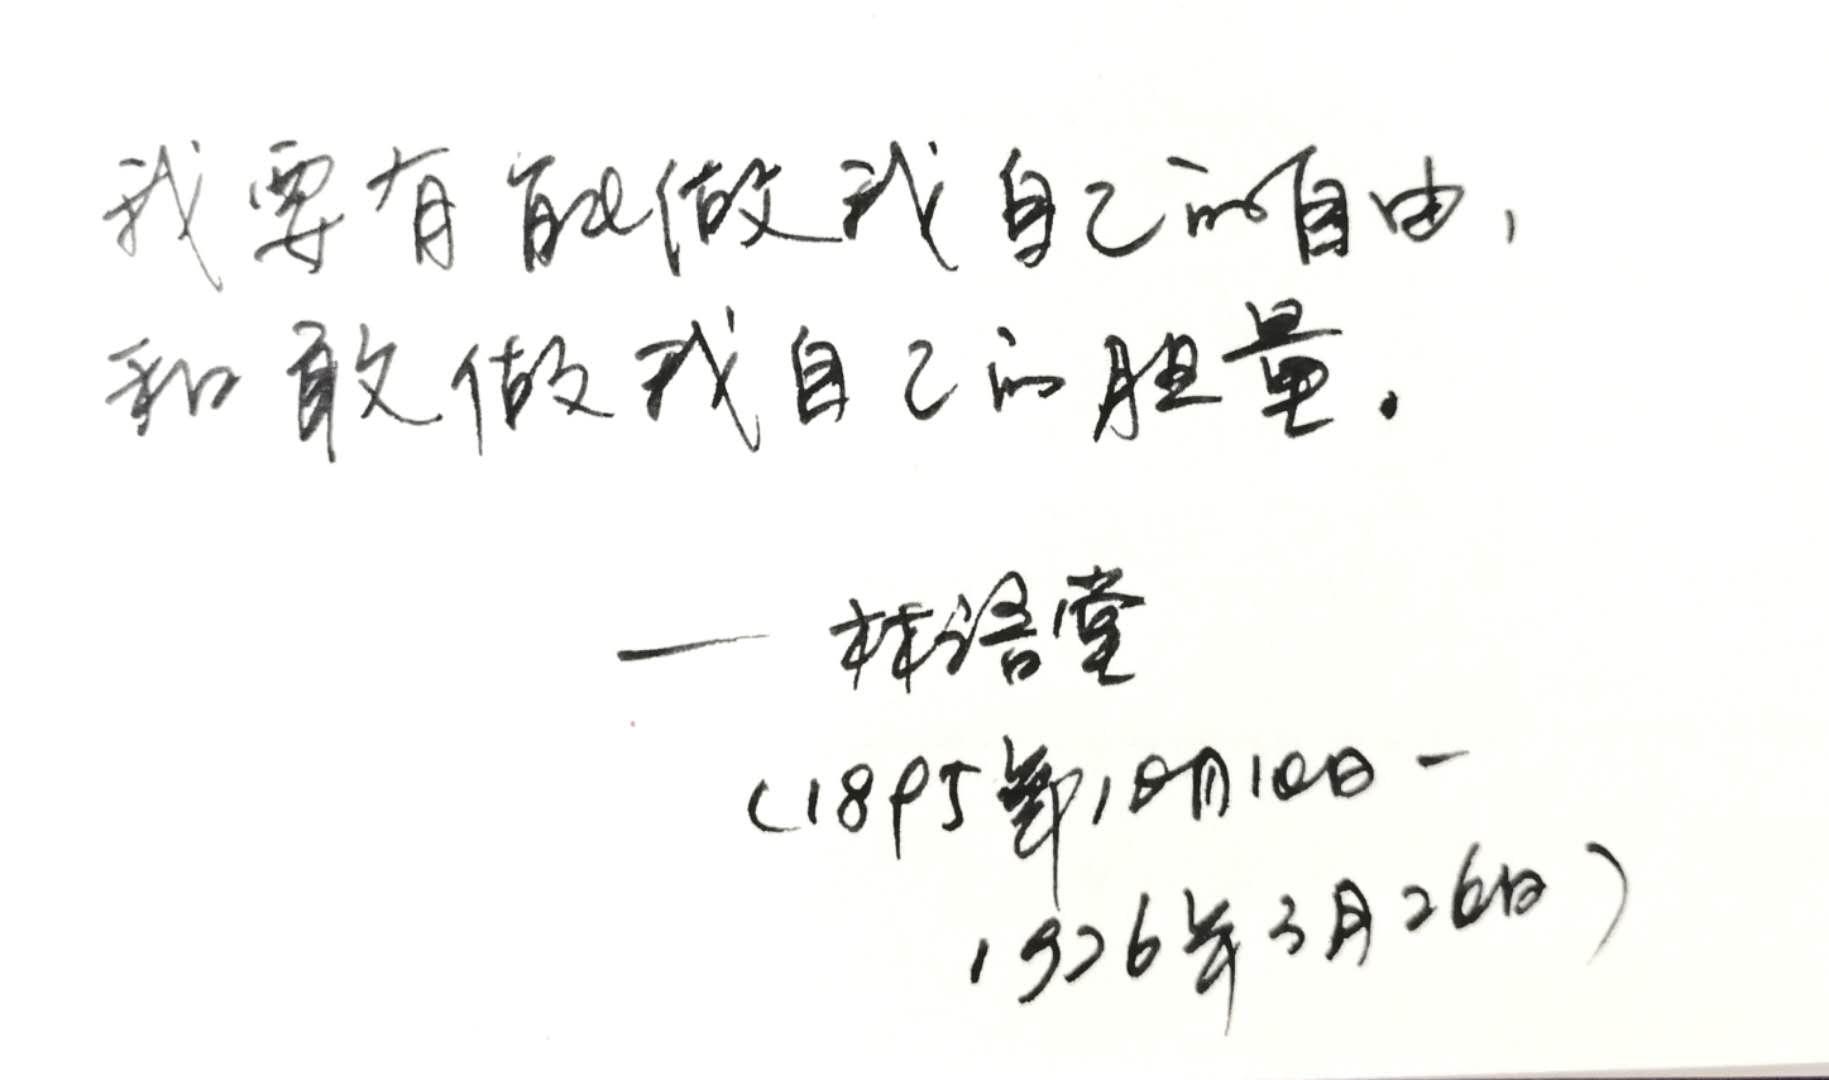 我要有能做我自己的自由，
和敢做我自己的胆量。
— 林语堂
（1895年10月10日-
1926年3月26日）